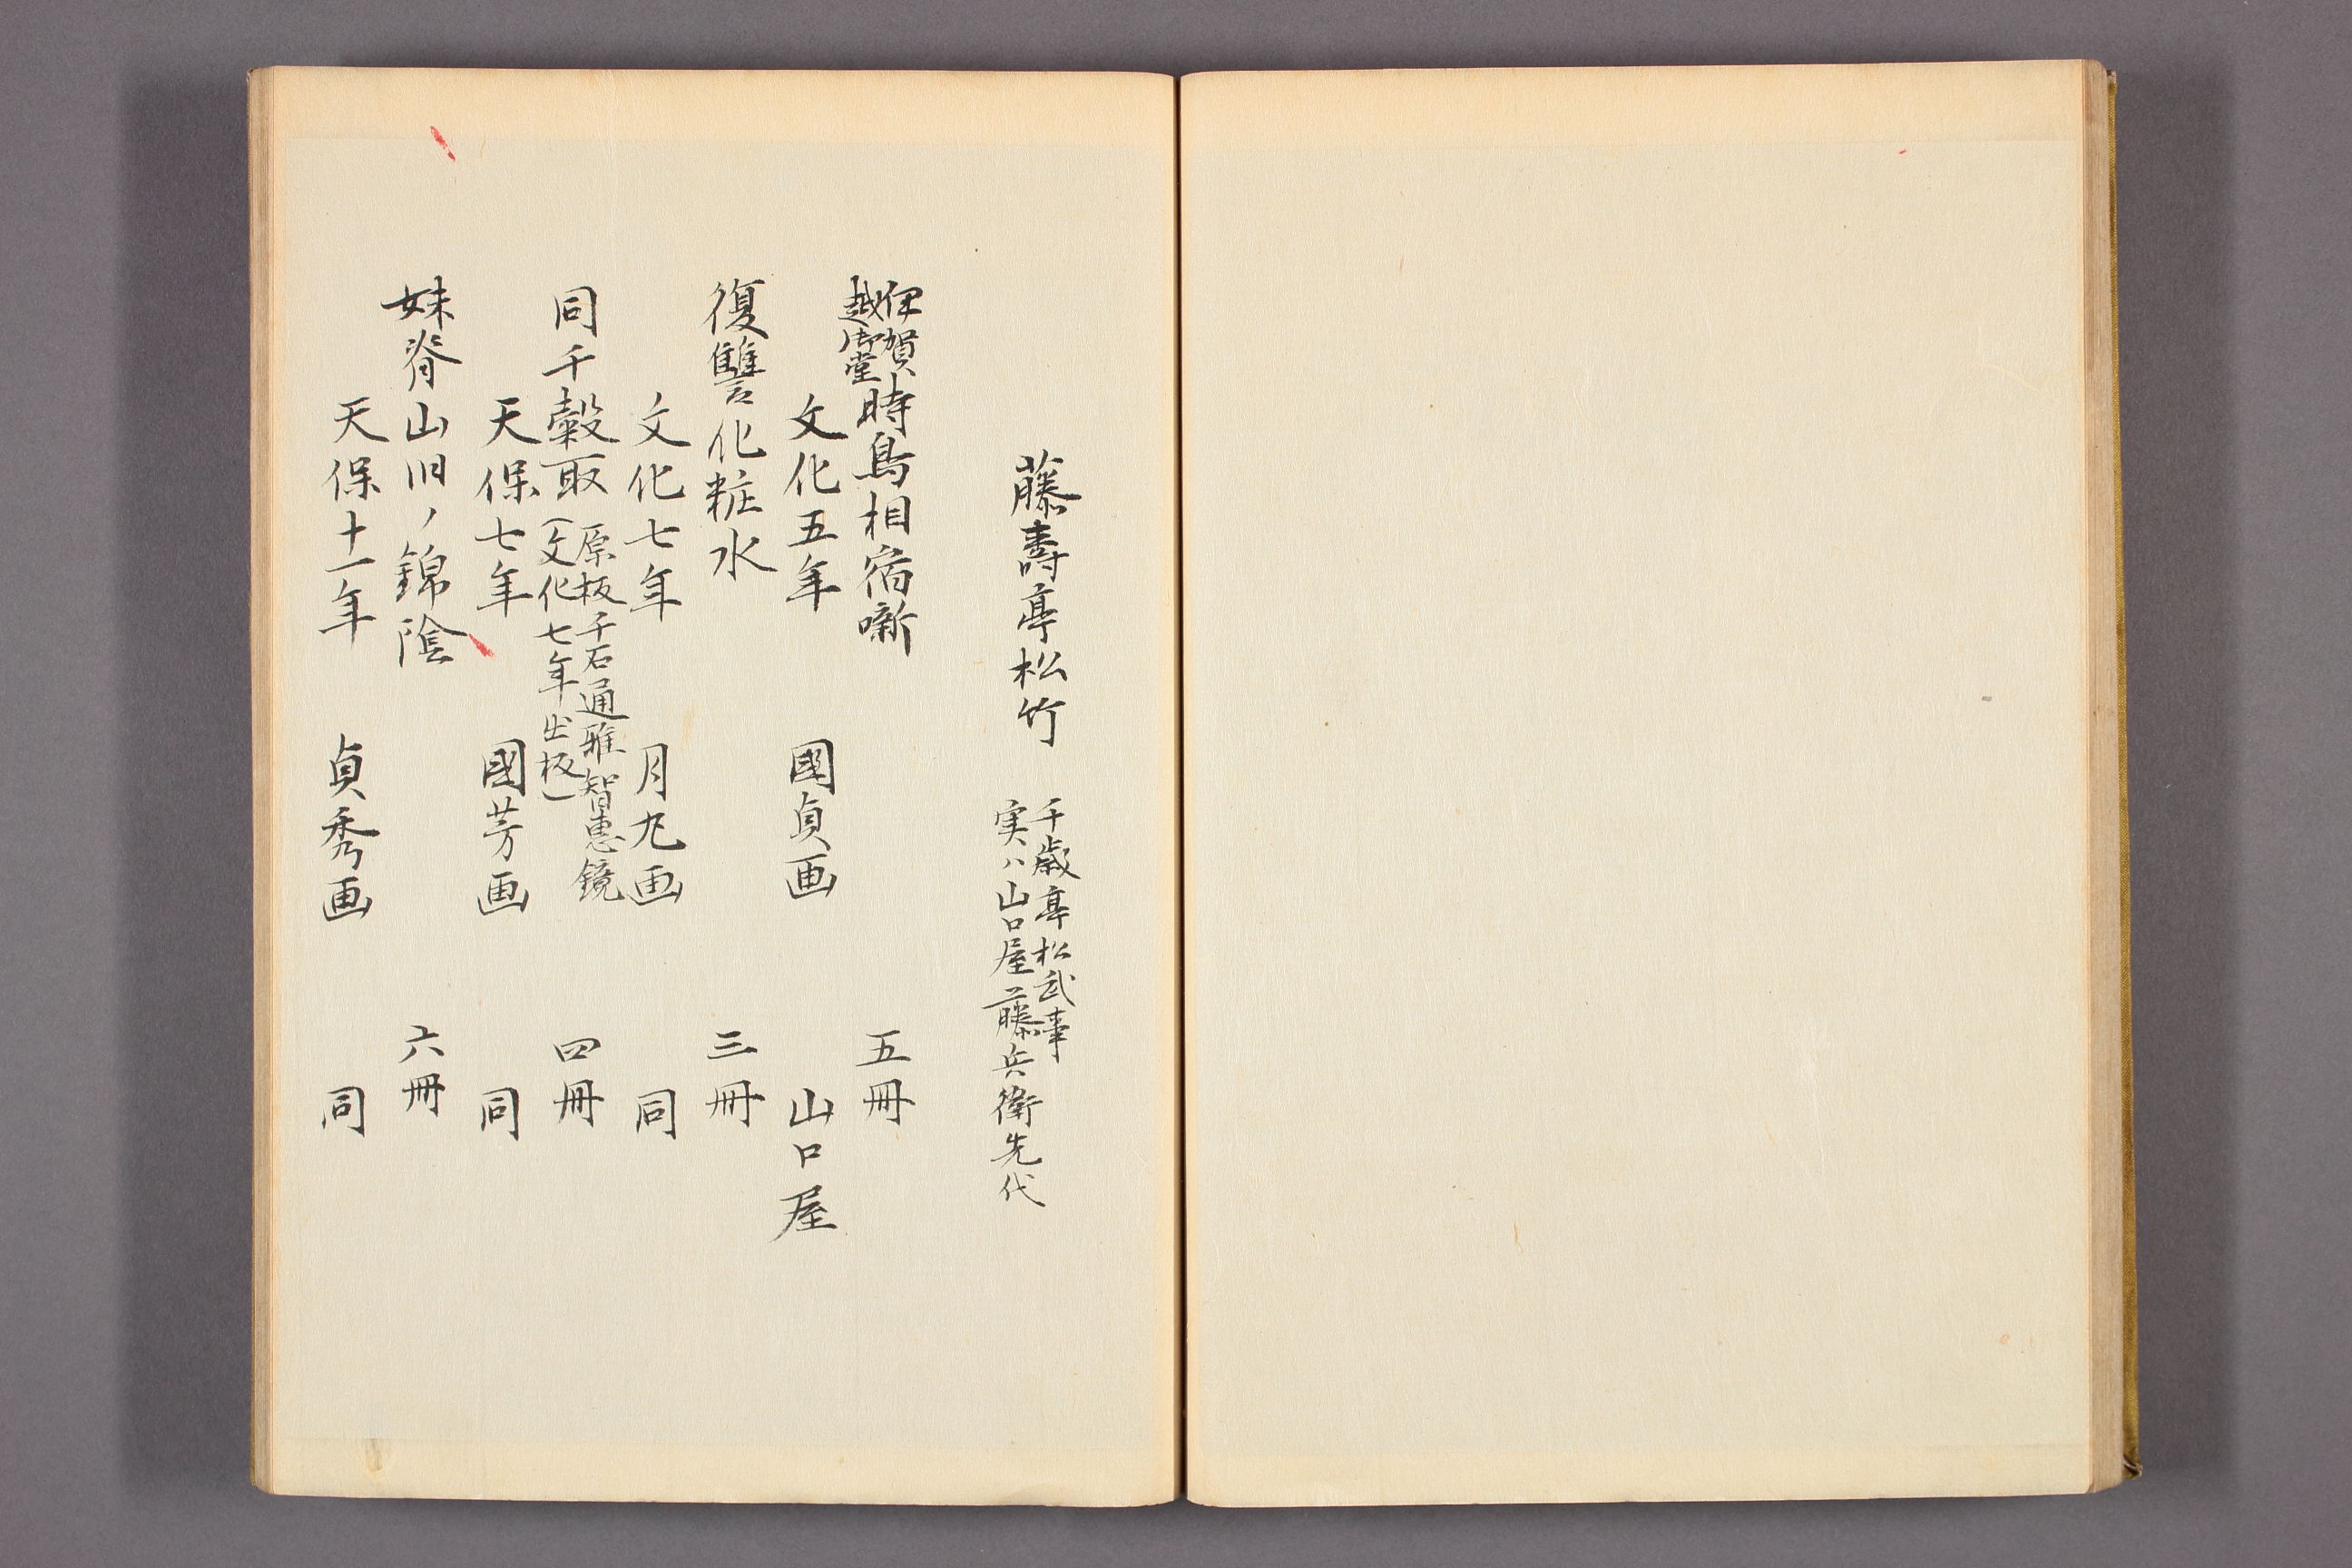 藤壽亭松竹
千歳亭松武事
実ハ山口屋藤兵衛先代
伊賀
越御堂
時鳥相宿噺 五冊
文化五年 國貞画 山口屋
復讐化粧水 三冊
文化七年 月丸画 同
同千穀取 四冊
原板千石通雅智恵鏡
(文化七年出板)
天保七年 國芳画 同
妹脊山旧ノ錦陰 六冊
天保十一年 貞秀画 同